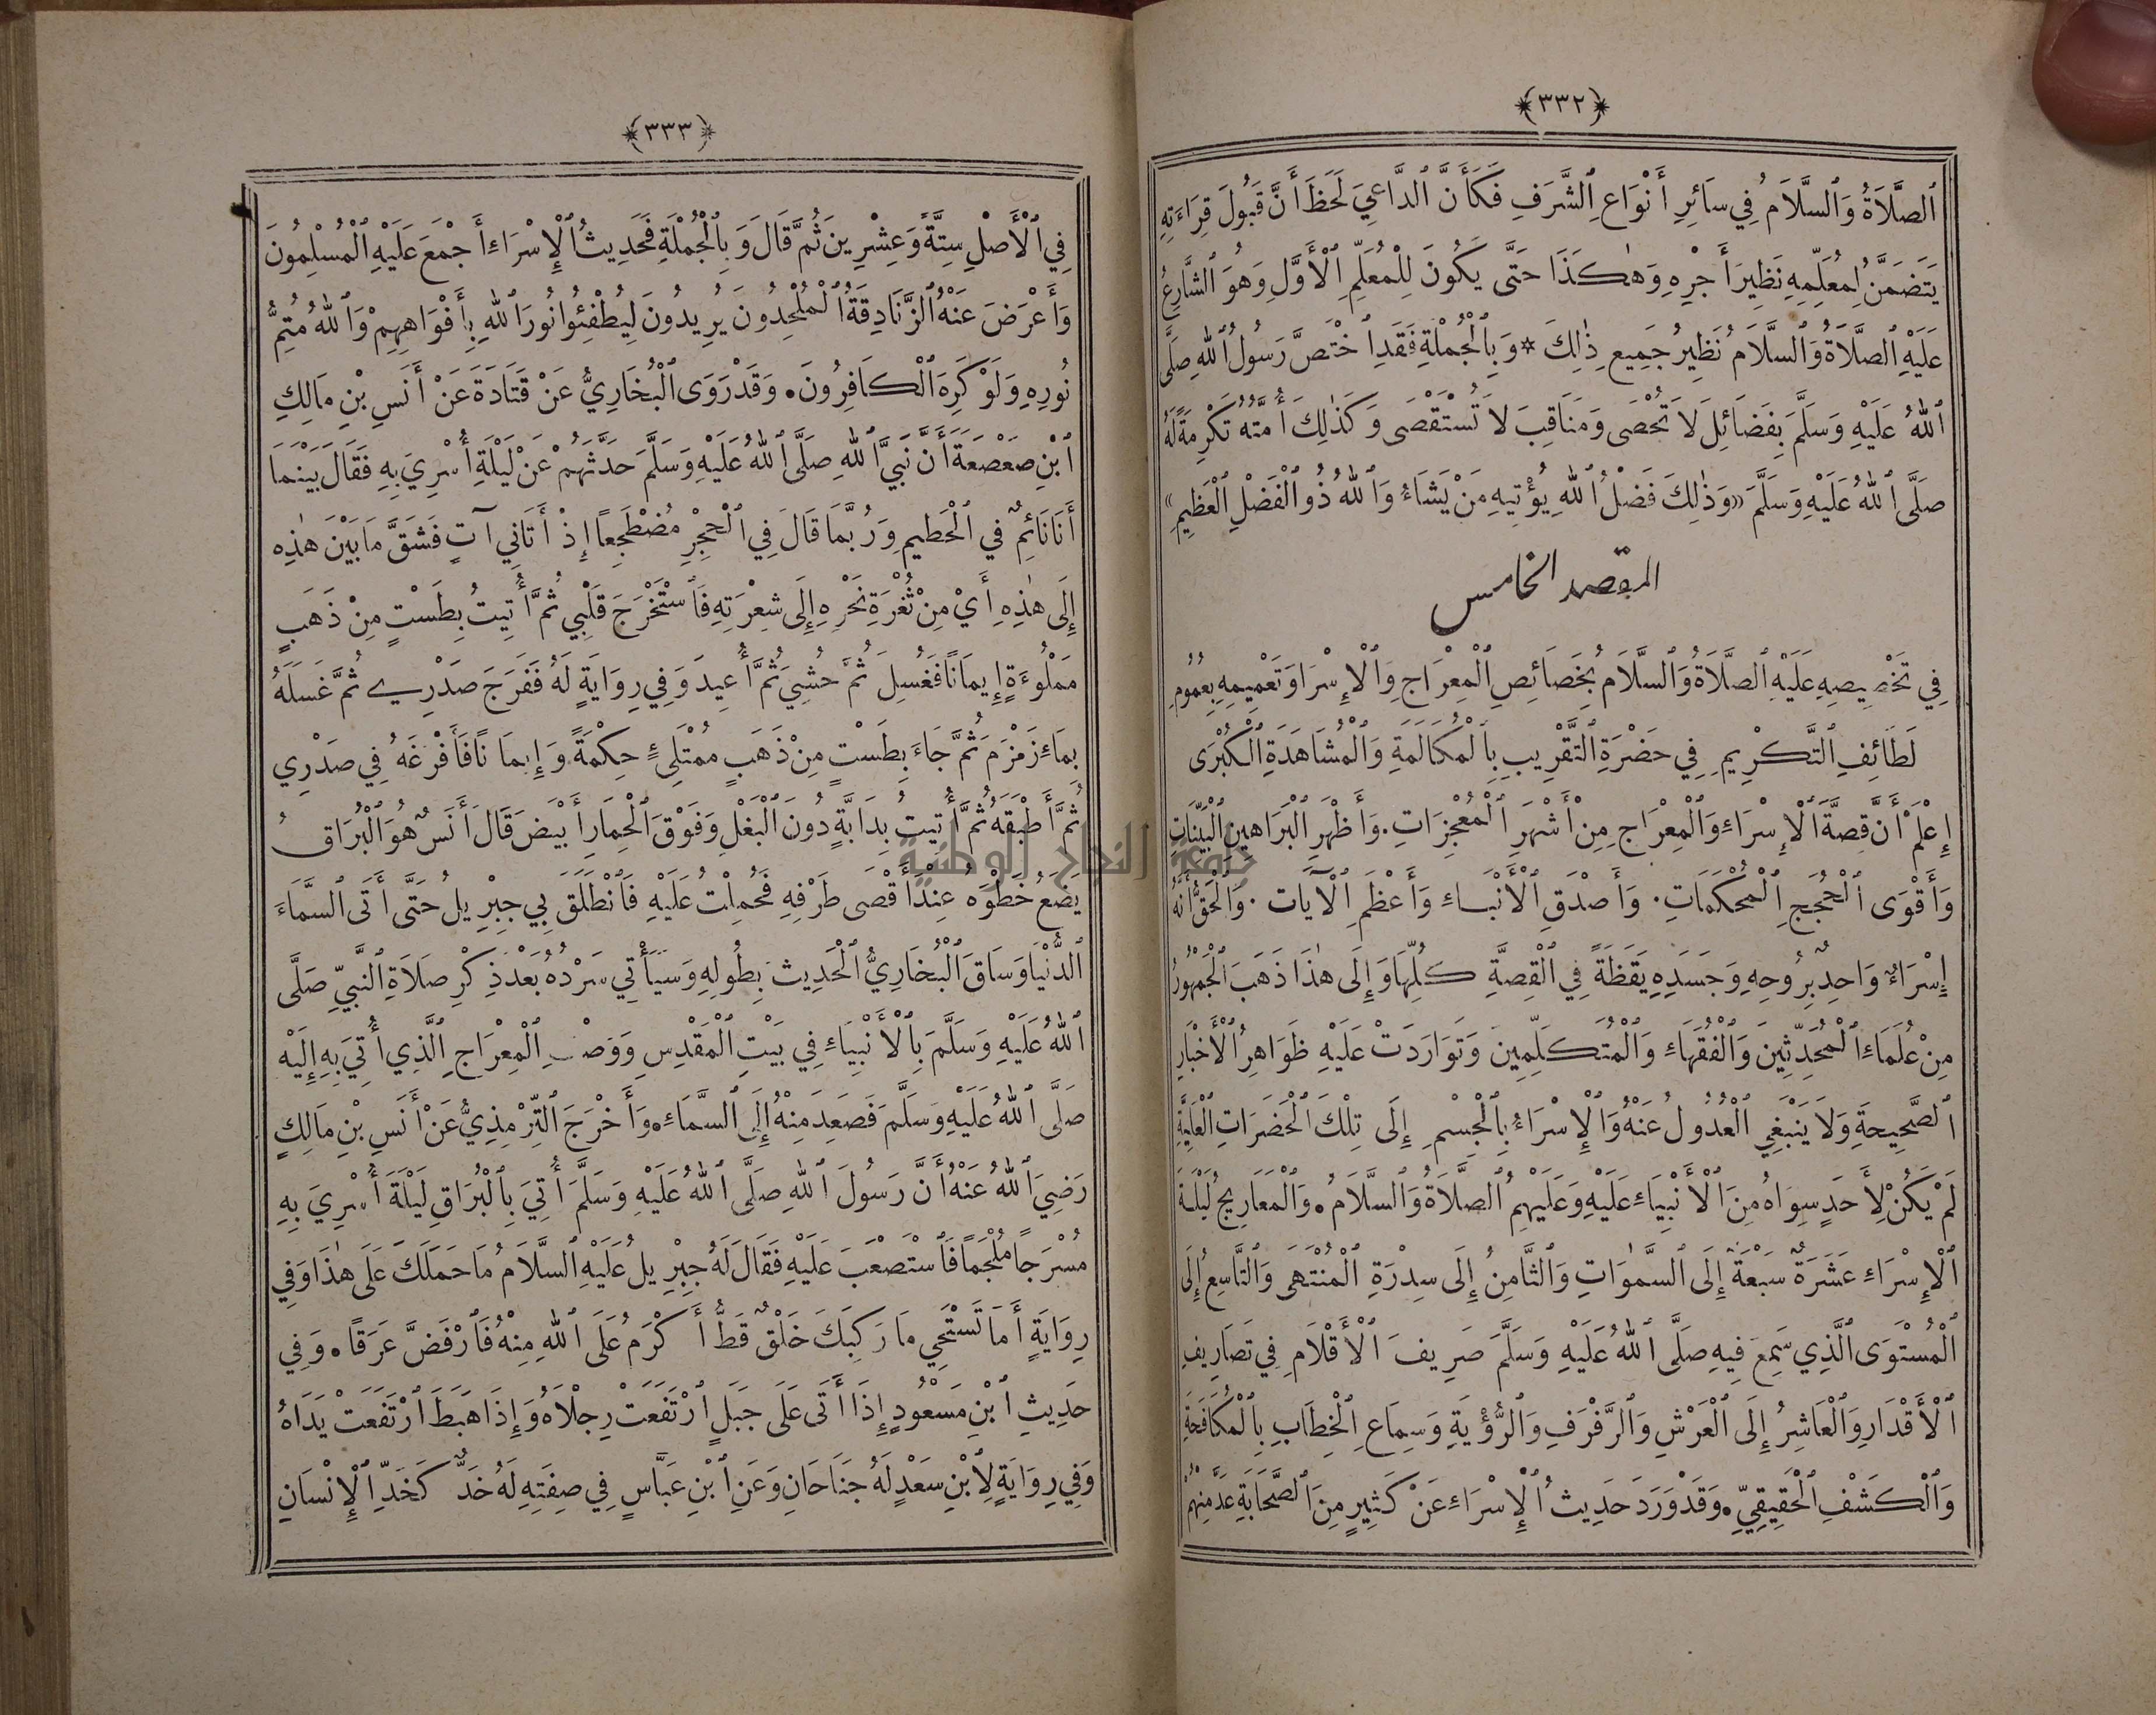 ﴿٣٣٢﴾
ٱلصَّلَاةُ وَٱلسَّلَامُ فِي سَائِرِ أَنْوَاعِ ٱلشَّرَفِ فَكَأَنَّ ٱلدَّاعِيَ لَحَظَ أَنَّ قَبُولَ قِرَاءَتِهِ
يَتَضَمَّنُ لِمُعَلِّمِهِ نَظِيرَ أَجْرِهِ وَهٰكَذَا حَتَّى يَكُونَ لِلْمُعَلِّمِ ٱلْأَوَّلِ وَهُوَ ٱلشَّارِعُ
عَلَيْهِ ٱلصَّلَاةُ وَٱلسَّلَامُ نَظِيرُ جَمِيعِ ذٰلِكَ * وَبِٱلْجُمْلَةِ فَقَدِ ٱخْتَصَّ رَسُولُ ٱللهِ صَلَّى
ٱللهُ عَلَيْهِ وَسَلَّمَ بِفَضَائِلَ لَا تُحْصَى وَمَنَاقِبَ لَا تُسْتَقْصَى وَكَذٰلِكَ أُمَّتُهُ تَكْرِمَةً لَهُ
صَلَّى ٱللهُ عَلَيْهِ وَسَلَّمَ «وَذٰلِكَ فَضْلُ ٱللهِ يُؤْتِيهِ مَنْ يَشَاءُ وَٱللهُ ذُو ٱلْفَضْلِ ٱلْعَظِيمِ»
المقصد الخامس
فِي تَخْصِيصِهِ عَلَيْهِ ٱلصَّلَاةُ وَٱلسَّلَامُ بِخَصَائِصِ ٱلْمِعْرَاجِ وَٱلْإِسْرَا وَتَعْمِيمِهِ بِعُمُومِ
لَطَائِفِ ٱلتَّكْرِيمِ فِي حَضْرَةِ ٱلتَّقْرِيبِ بِٱلْمُكَالَمَةِ وَٱلْمُشَاهَدَةِ ٱلْكُبْرَى
إِعْلَمْ أَنَّ قِصَّةَ ٱلْإِسْرَاءِ وَٱلْمِعْرَاجِ مِنْ أَشْهَرِ ٱلْمُعْجِزَاتِ. وَأَظْهَرِ ٱلْبَرَاهِينِ ٱلْبَيِّنَاتِ
وَأَقْوَى ٱلْحُجَجِ ٱلْمُحْكَمَاتِ. وَأَصْدَقِ ٱلْأَنْبَاءِ وَأَعْظَمِ ٱلْآيَاتِ. وَٱلْحَقُّ أَنَّهُ
إِسْرَاءٌ وَاحِدٌ بِرُوحِهِ وَجَسَدِهِ يَقَظَةً فِي ٱلْقِصَّةِ كُلِّهَا وَإِلَى هٰذَا ذَهَبَ ٱلْجُمْهُورُ
مِنْ عُلَمَاءِ ٱلْمُحَدِّثِينَ وَٱلْفُقَهَاءِ وَٱلْمُتَكَلِّمِينَ وَتَوَارَدَتْ عَلَيْهِ ظَوَاهِرُ ٱلْأَخْبَارِ
ٱلصَّحِيحَةِ وَلَا يَنْبَغِي ٱلْعُدُولُ عَنْهُ وَٱلْإِسْرَاءُ بِٱلْجِسْمِ إِلَى تِلْكَ ٱلْحَضَرَاتِ ٱلْعَلِيَّةِ
لَمْ يَكُنْ لِأَحَدٍ سِوَاهُ مِنَ ٱلْأَنْبِيَاءِ عَلَيْهِ وَعَلَيْهِمُ ٱلصَّلَاةُ وَٱلسَّلَامُ. وَٱلْمَعَارِيجُ لَيْلَةَ
ٱلْإِسْرَاءِ عَشَرَةٌ سَبْعَةٌ إِلَى ٱلسَّمٰوَاتِ وَٱلثَّامِنُ إِلَى سِدْرَةِ ٱلْمُنْتَهَى وَٱلتَّاسِعُ إِلَى
ٱلْمُسْتَوَى ٱلَّذِي سَمِعَ فِيهِ صَلَّى ٱللهُ عَلَيْهِ وَسَلَّمَ صَرِيفَ ٱلْأَقْلَامِ فِي تَصَارِيفِ
ٱلْأَقْدَارِ وَٱلْعَاشِرُ إِلَى ٱلْعَرْشِ وَٱلرَّفْرَفِ وَٱلرُّؤْيَةِ وَسِمَاعِ ٱلْخِطَابِ بِٱلْمُكَافَحَةِ
وَٱلْكَشْفِ ٱلْحَقِيقِيِّ. وَقَدْ وَرَدَ حَدِيثُ ٱلْإِسْرَاءِ عَنْ كَثِيرٍ مِنَ ٱلصَّحَابَةِ عَدَّ مِنْهُمْ
﴿٣٣٣﴾
فِي ٱلْأَصْلِ سِتَّةً وَعِشْرِينَ ثُمَّ قَالَ وَبِٱلْجُمْلَةِ فَحَدِيثُ ٱلْإِسْرَاءِ أَجْمَعَ عَلَيْهِ ٱلْمُسْلِمُونَ
وَأَعْرَضَ عَنْهُ ٱلزَّنَادِقَةُ ٱلْمُلْحِدُونَ يُرِيدُونَ لِيُطْفِئُوا نُورَ ٱللهِ بِأَفْوَاهِهِمْ وَٱللهُ مُتِمُّ
نُورِهِ وَلَوْ كَرِهَ ٱلْكَافِرُونَ. وَقَدْ رَوَى ٱلْبُخَارِيُّ عَنْ قَتَادَةَ عَنْ أَنَسِ بْنِ مَالِكِ
ٱبْنِ صَعْصَعَةَ أَنَّ نَبِيَّ ٱللهِ صَلَّى ٱللهُ عَلَيْهِ وَسَلَّمَ حَدَّثَهُمْ عَنْ لَيْلَةِ أُسْرِيَ بِهِ فَقَالَ بَيْنَمَا
أَنَا نَائِمٌ فِي ٱلْحَطِيمِ وَرُبَّمَا قَالَ فِي ٱلْحِجْرِ مُضْطَجِعًا إِذْ أَتَانِي آتٍ فَشَقَّ مَا بَيْنَ هٰذِهِ
إِلَى هٰذِهِ أَيْ مِنْ ثُغْرَةِ نَحْرِهِ إِلَى شِعْرَتِهِ فَٱسْتَخْرَجَ قَلْبِي ثُمَّ أُتِيتُ بِطَسْتٍ مِنْ ذَهَبٍ
مَمْلُوءَةٍ إِيمَانًا فَغُسِلَ ثُمَّ حُشِيَ ثُمَّ أُعِيدَ وَفِي رِوَايَةٍ لَهُ فَفَرَجَ صَدْرِي ثُمَّ غَسَلَهُ
بِمَاءِ زَمْزَمَ ثُمَّ جَاءَ بِطَسْتٍ مِنْ ذَهَبٍ مُمْتَلِئٍ حِكْمَةً وَإِيمَانًا فَأَفْرَغَهُ فِي صَدْرِي
ثُمَّ أَطْبَقَهُ ثُمَّ أُتِيتُ بِدَابَّةٍ دُونَ ٱلْبَغْلِ وَفَوْقَ ٱلْحِمَارِ أَبْيَضَ قَالَ أَنَسٌ هُوَ ٱلْبُرَاقُ
يَضَعُ خَطْوَهُ عِنْدَ أَقْصَى طَرْفِهِ فَحُمِلْتُ عَلَيْهِ فَٱنْطَلَقَ بِي جِبْرِيلُ حَتَّى أَتَى ٱلسَّمَاءَ
ٱلدُّنْيَا وَسَاقَ ٱلْبُخَارِيُّ ٱلْحَدِيثَ بِطُولِهِ وَسَيَأْتِي سَرْدُهُ بَعْدَ ذِكْرِ صَلَاةِ ٱلنَّبِيِّ صَلَّى
ٱللهُ عَلَيْهِ وَسَلَّمَ بِٱلْأَنْبِيَاءِ فِي بَيْتِ ٱلْمَقْدِسِ وَوَصْفِ ٱلْمِعْرَاجِ ٱلَّذِي أُتِيَ بِهِ إِلَيْهِ
صَلَّى ٱللهُ عَلَيْهِ وَسَلَّمَ فَصَعِدَ مِنْهُ إِلَى ٱلسَّمَاءِ. وَأَخْرَجَ ٱلتِّرْمِذِيُّ عَنْ أَنَسِ بْنِ مَالِكٍ
رَضِيَ ٱللهُ عَنْهُ أَنَّ رَسُولَ ٱللهِ صَلَّى ٱللهُ عَلَيْهِ وَسَلَّمَ أُتِيَ بِٱلْبُرَاقِ لَيْلَةَ أُسْرِيَ بِهِ
مُسْرَجًا مُلْجَمًا فَٱسْتَصْعَبَ عَلَيْهِ فَقَالَ لَهُ جِبْرِيلُ عَلَيْهِ ٱلسَّلَامُ مَا حَمَلَكَ عَلَى هٰذَا وَفِي
رِوَايَةٍ أَمَا تَسْتَحْيِ مَا رَكِبَكَ خَلْقٌ قَطُّ أَكْرَمُ عَلَى ٱللهِ مِنْهُ فَٱرْفَضَّ عَرَقًا. وَفِي
حَدِيثِ ٱبْنِ مَسْعُودٍ إِذَا أَتَى عَلَى جَبَلٍ ٱرْتَفَعَتْ رِجْلَاهُ وَإِذَا هَبَطَ ٱرْتَفَعَتْ يَدَاهُ
وَفِي رِوَايَةٍ لِٱبْنِ سَعْدٍ لَهُ جَنَاحَانِ وَعَنِ ٱبْنِ عَبَّاسٍ فِي صِفَتِهِ لَهُ خَدٌّ كَخَدِّ ٱلْإِنْسَانِ
جامعة النجاح الوطنية